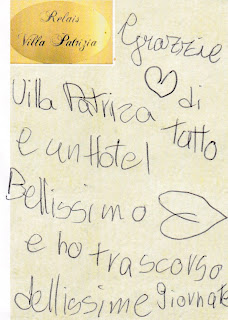 Relais
Villa Patrizia
Grazzie
Villa Patriza di
tutto
e un Hotel
Bellissimo
e ho trascorso
dellissime giornate